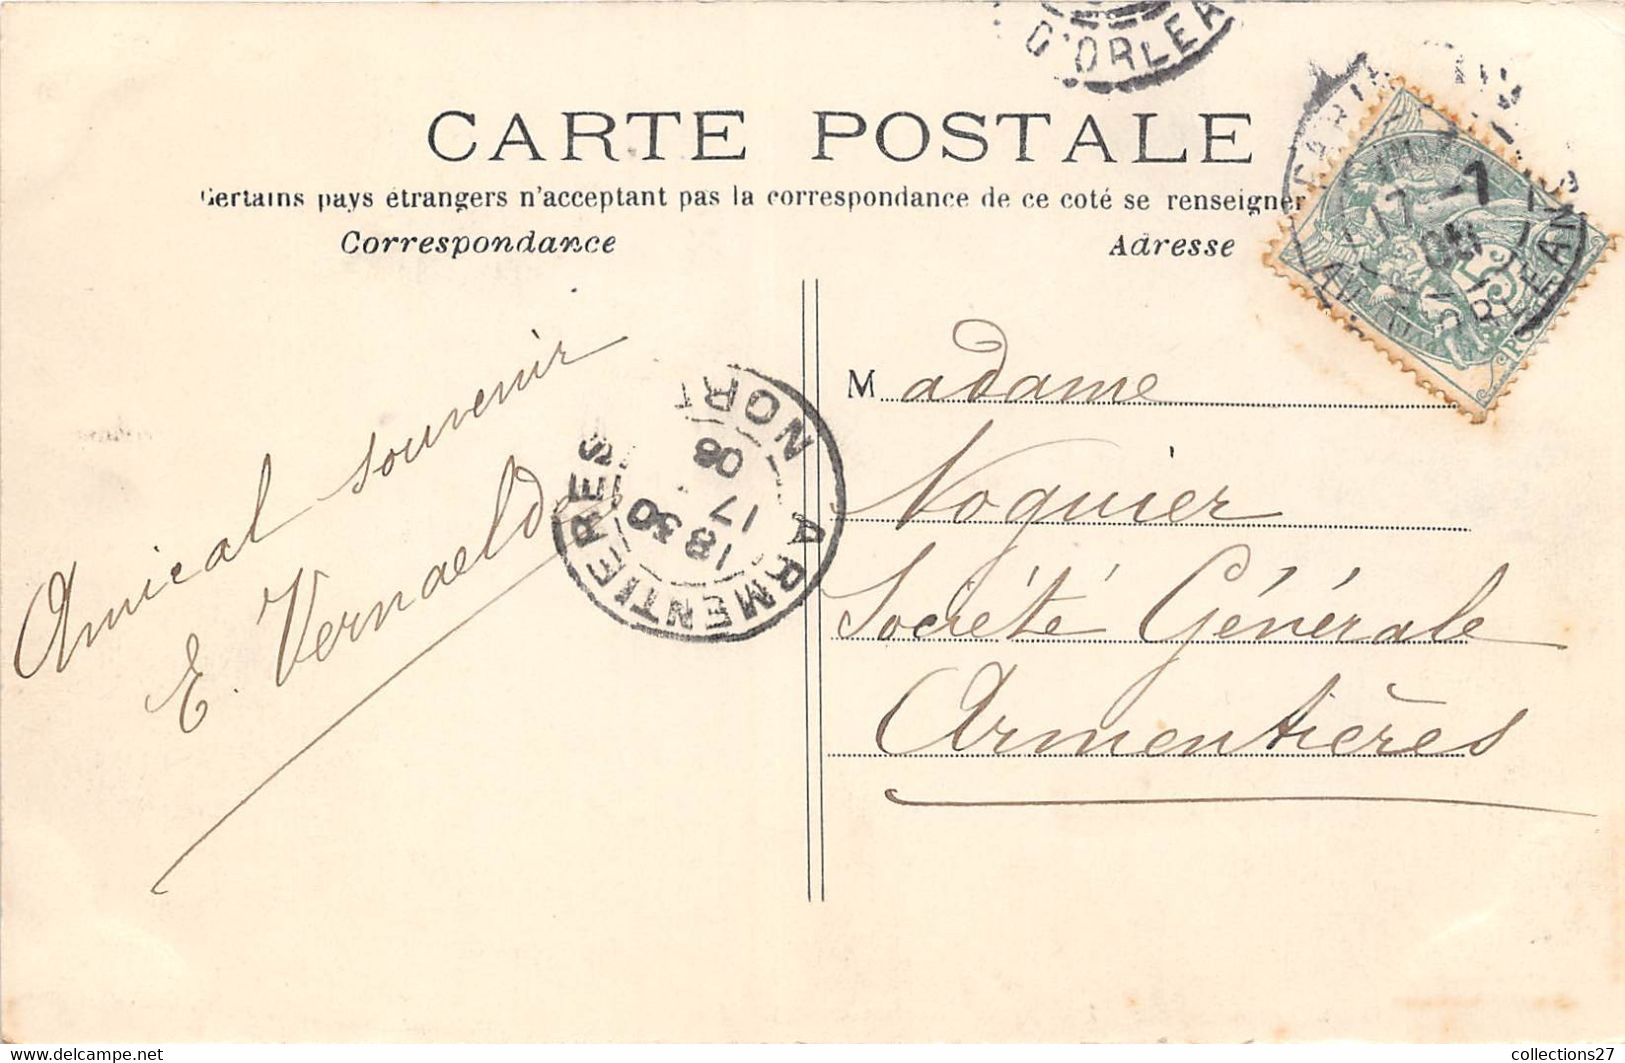 D'ORLEA
CARTE POSTALE
Certains pays étrangers n'acceptant pas la correspondance de ce coté se renseigner
Correspondance
Adresse
Amical souvenir
E. Vernaelde
ARMENTIERES
18 30
17
08
NORD
Madame
Noquier
Société Générale
Armentières
PARIS
17 -1
08
ORLEANS
5
collections27